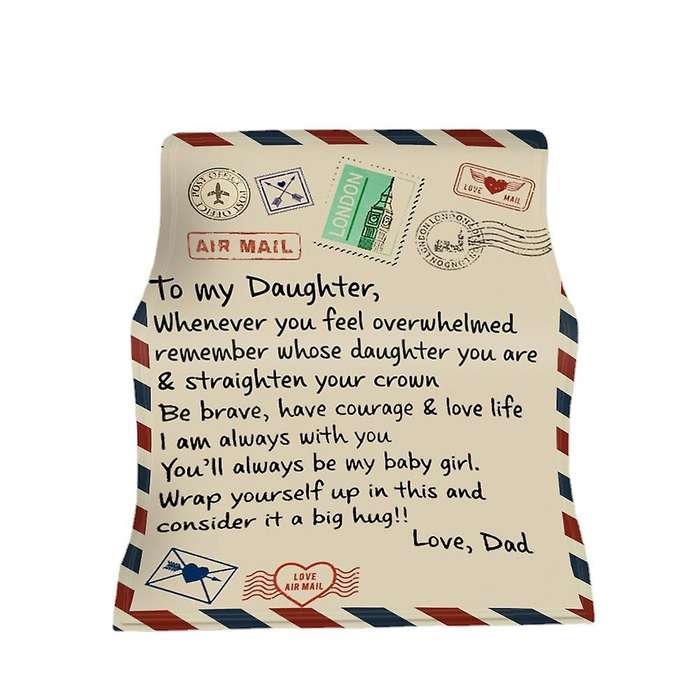 POST OFFICE POST OFFICE
LONDON
LOVE MAIL
LONDON LONDON LONDON LONDON
AIR MAIL
To my Daughter,
Whenever you feel overwhelmed
remember whose daughter you are
& straighten your crown
Be brave, have courage & love life
I am always with you
You'll always be my baby girl.
Wrap yourself up in this and
consider it a big hug!!
Love, Dad
LOVE
AIR MAIL